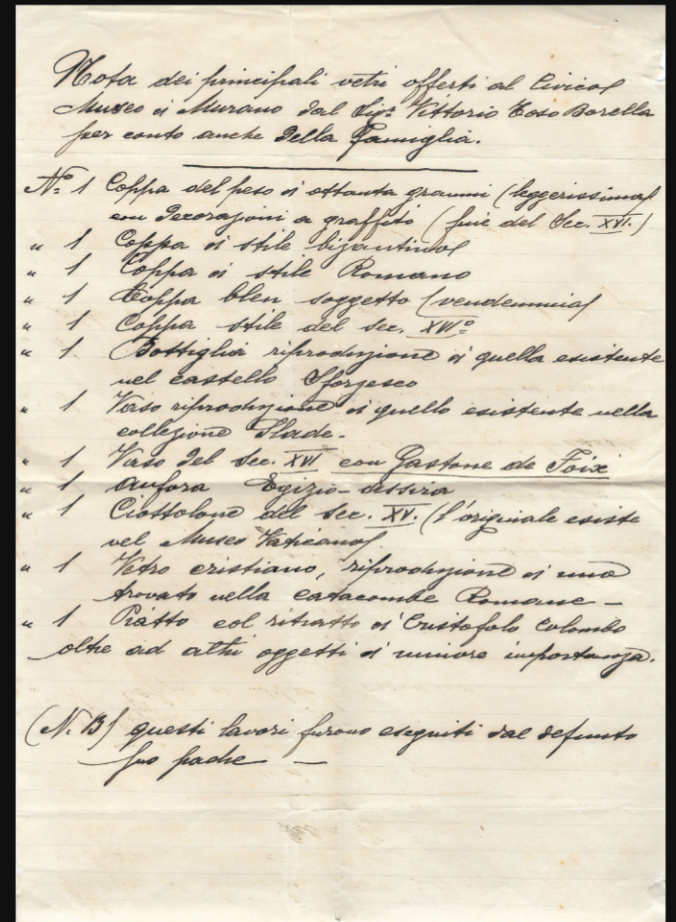 Nota dei principali vetri offerti al Civico
Museo di Murano dal Sigr. Vittorio Toso Borella
per conto anche della Famiglia.
No. 1 Coppa del peso di ottanta grammi (leggerissima)
con decorazioni a graffito (fine del Sec. XVI.)
" 1 Coppa di stile bizantino
" 1 Coppa di stile Romano
" 1 Coppa bleu soggetto (vendemmia)
" 1 Coppa stile del sec. XVIo
" 1. Bottiglia riproduzione di quella esistente
nel castello Sforzesco
" 1 Vaso riproduzione di quello esistente nella
collezione Slade.
" 1 Vaso del Sec. XVI con Gastone de Foix
" 1 Anfora Egizio-Assira
" 1 Ciottolone del sec. XV. (l'originale esiste
nel Museo Vaticano)
" 1 Vetro cristiano, riproduzione di uno
trovato nella catacombe Romane -
" 1 Piatto col ritratto di Cristofolo Colombo
oltre ad altri oggetti di minore importanza.
(N. B) questi lavori furono eseguiti dal defunto
suo padre -